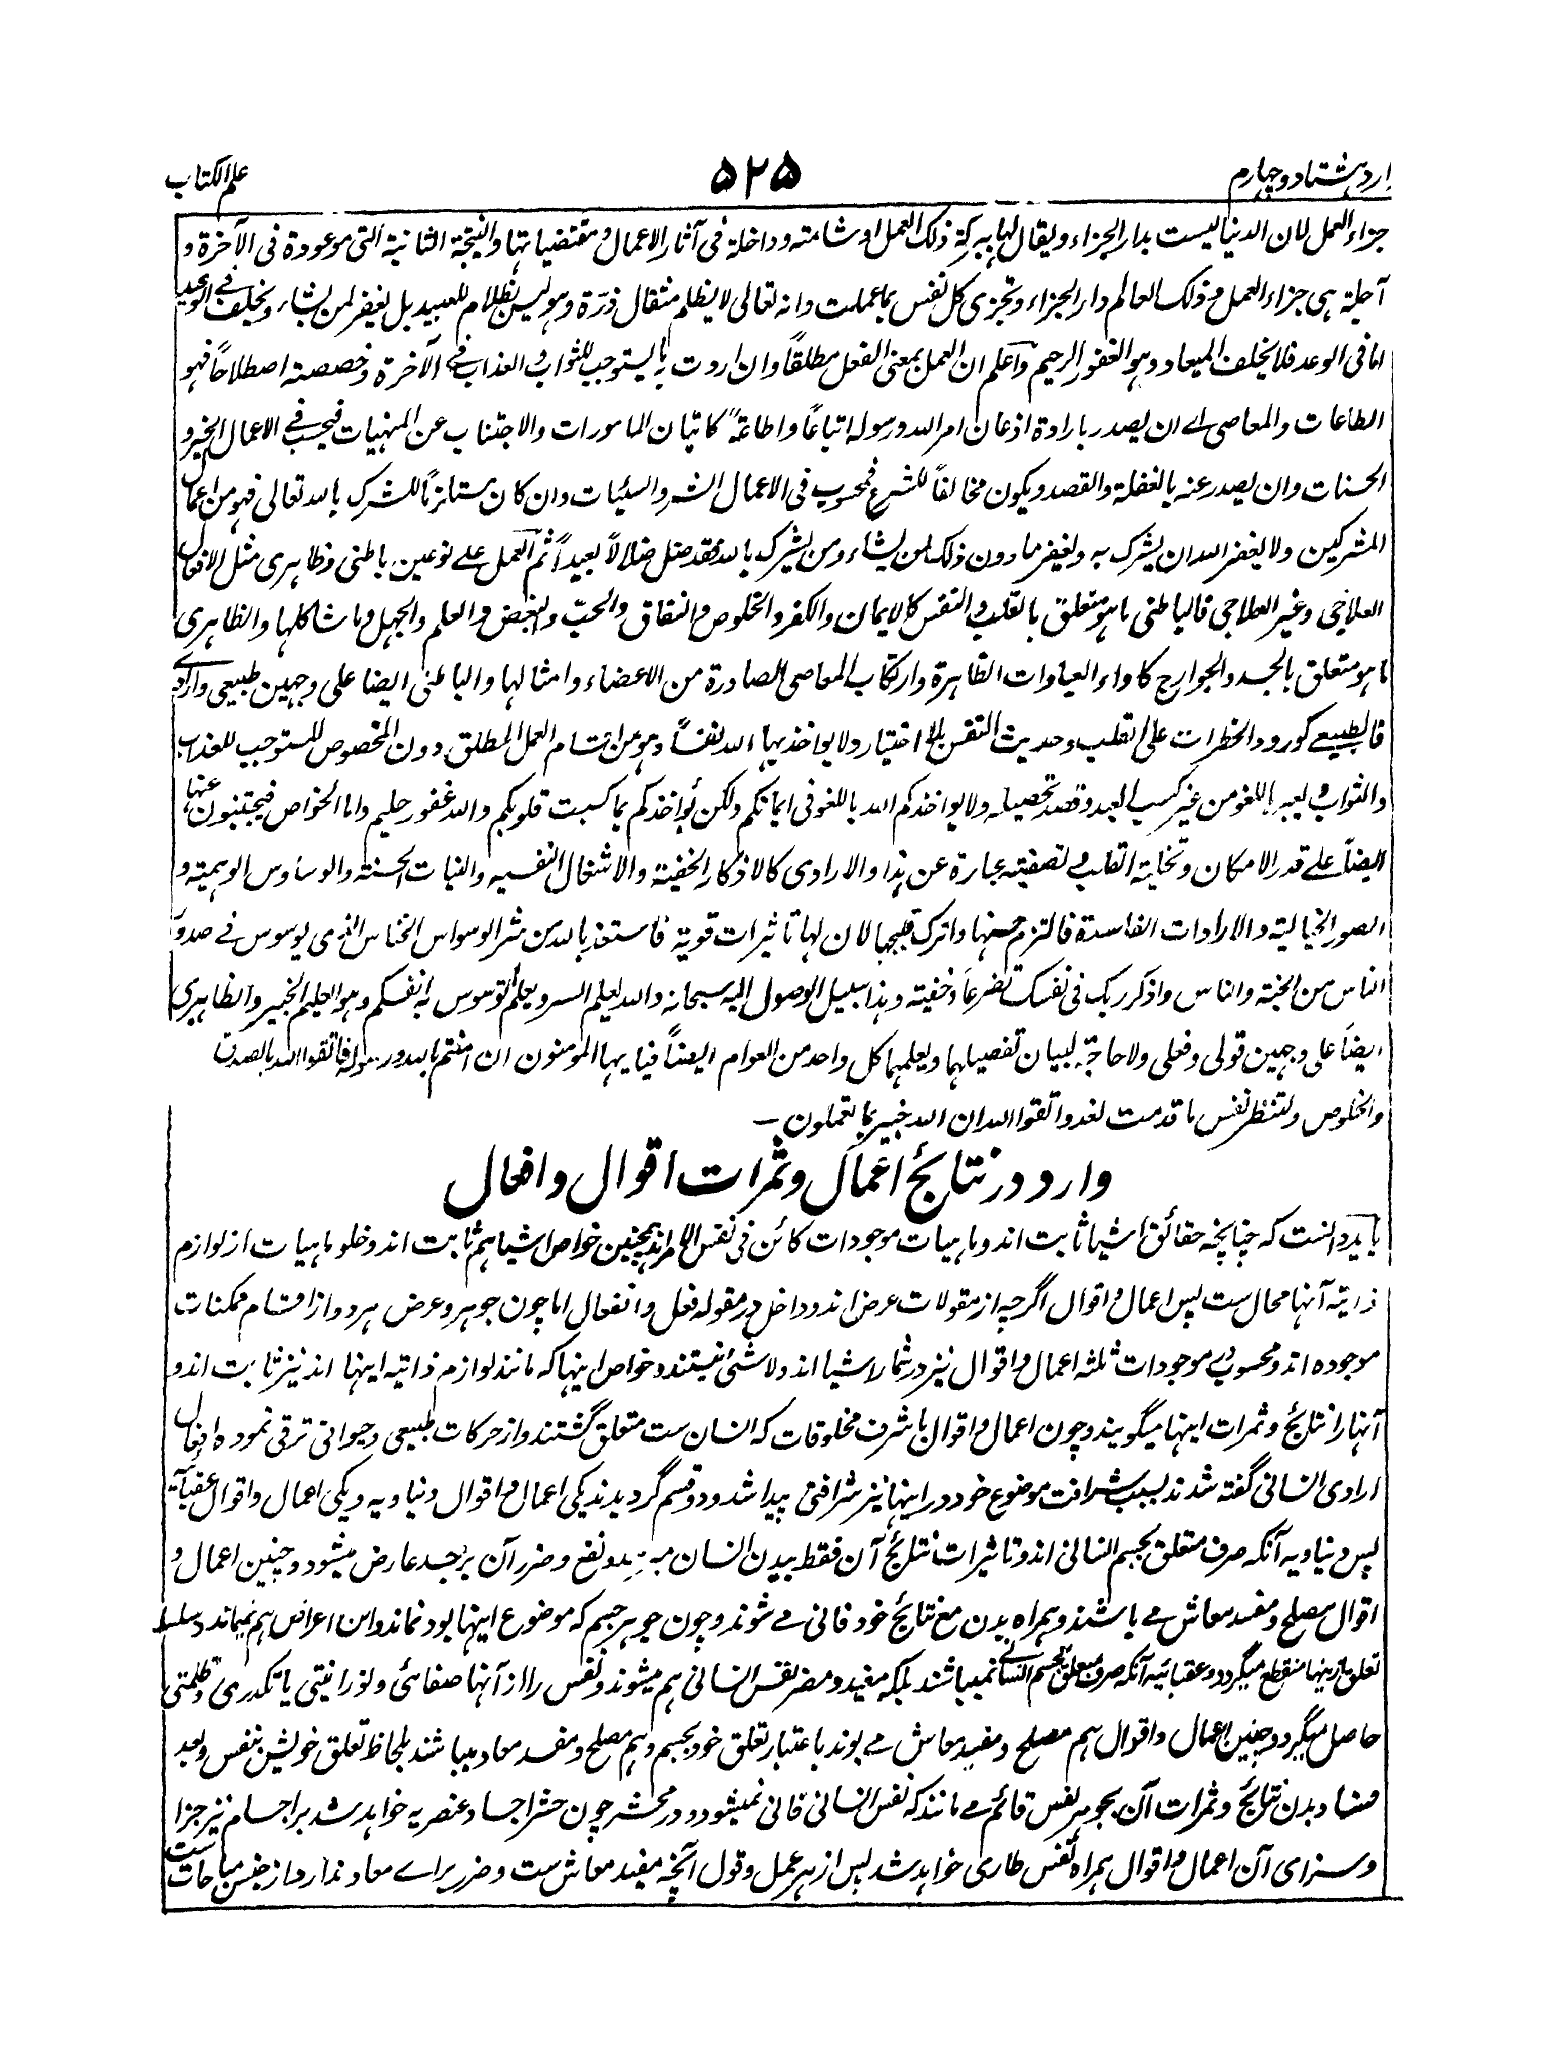 وارد هشتاد و چهارم
۵۲۵
علم الکتاب
جزاء العمل لان الدنیا لیست بدار الجزاء ویقال لها ببرکة ذلک العمل او شامته وداخلة فی آثار الاعمال ومقتضیاتها والنتیجة الثانیة التی موعودة فی الآخرة و
آجلة هی جزاء العمل وذلک العالم دار الجزاء وتجزی کل نفس بما عملت وانه تعالی لا یظلم مثقال ذرّة وهو لیس بظلام للعبید بل یغفر لمن یشاء ویخلف فی الوعید
اما فی الوعد فلا یخلف المیعاد وهو الغفور الرحیم واعلم ان العمل بمعنی الفعل مطلقاً وان اردت به ما یستوجب للثواب والعذاب فی الآخرة وخصصته اصطلاحاً فهو
الطاعات والمعاصی اے ان یصدر بارادة اذعان امر الله ورسوله اتباعاً واطاعةً کاتیان المامورات والاجتناب عن المنهیات فیحسب فے الاعمال الخیر و
الحسنات وان یصدر عنه بالغفلة والقصد ویکون مخالفاً للشرع فمحسوب فی الاعمال الشر والسیئات وان کان مستلزماً للشرک بالله تعالی فهو من اعمال
المشرکین ولا یغفر الله ان یشرک به ویغفر ما دون ذلک لمن یشاء ومن یشرک بالله فقد ضل ضلالاً بعیداً ثم العمل علے نوعین باطنی وظاهری مثل الافعال
العلاجی وغیر العلاجی فالباطنی ما هو متعلق بالقلب والنفس کالایمان والکفر والخلوص والنفاق والحبّ والبغض والعلم والجهل وما شاکلها والظاهری
ما هو متعلق بالجسد والجوارح کاداء العبادات الظاهرة وارتکاب المعاصی الصادرة من الاعضاء وامثالها والباطنی ایضا علی وجهین طبیعی وارادی
فالطبیعے کورود الخطرات علی القلب وحدیث النفس بلا اختیار ولا یواخذ بها الله نفساً وهو من اقسام العمل المطلق دون المخصوص المستوجب للعذاب
والثواب ویعبر باللغو من غیر کسب العبد وقصد تحصیله ولا یواخذکم الله باللغو فی ایمانکم ولکن یُواخذکم بما کسبت قلوبکم والله غفور حلیم واما الخواص فیجتنبون عنها
ایضاً علے قدر الامکان وتخلیة القلب وتصفیته عبارة عن هذا والارادی کالاذکار الخفیة والاشغال النفسیه والنیات الحسنة والوساوس الوهمیة و
الصور الخیالیة والارادات الفاسدة فالتزم حسنها واترک قبیحها لان لها تاثیرات قویة فاستعذ بالله من شر الوسواس الخناس الذی یوسوس فے صدور
الناس من الجنة والناس واذکر ربک فی نفسک تضرعاً وخفیة وهذا سبیل الوصول الیه سبحانه والله یعلم السر ویعلم ما توسوس به انفسکم وهو العلیم الخبیر والظاهری
ایضاً علی وجهین قولی وفعلی ولا حاجة لبیان تفصیلهما ویعلمهما کل واحد من العوام ایضاً فیا ایها المومنون ان امنتم بالله ورسوله فاتقوا الله بالصدق
والخلوص ولتنظر نفس ما قدمت لغد واتقوا الله ان الله خبیر بما تعملون ـ
وارد در نتایج اعمال و ثمرات اقوال و افعال
باید دانست که چنانچه حقائق اشیا ثابت اند و ماهیات موجودات کائن فی نفس الامر اند همچنین خواص اشیا هم ثابت اند و خلو ماهیات از لوازم
ذاتیه آنها محال ست پس اعمال و اقوال اگرچه از مقولات عرض اند و داخل در مقوله فعل و انفعال اما چون جوهر و عرض هر دو از اقسام ممکنات
موجوده اند و محسوب در موجودات ثلثه اعمال و اقوال نیز در شمار اشیا اند و لاشئ نیستند و خواص اینها که مانند لوازم ذاتیه اینها اند نیز ثابت اند و
آنها را نتایج و ثمرات اینها میگویند و چون اعمال و اقوال باشرف مخلوقات که انسان ست متعلق گشتند و از حرکات طبیعی و حیوانی ترقی نموده افعال
ارادی انسانی گفته شدند بسبب شرافت موضوع خود در اینها نیز شرافتی پیدا شد و دو قسم گردیدند یکی اعمال و اقوال دنیاویه و یکی اعمال و اقوال عقبائیه
پس دنیاویه آنکه صرف متعلق بجسم انسانی اند و تاثیرات نتایج آن فقط ببدن انسان میرسد و نفع و ضرر آن بر جسد عارض میشود و چنین اعمال و
اقوال مصلح و مفسد معاش مے باشند و همراه بدن مع نتایج خود فانی مے شوند و چون جوهر جسم که موضوع اینها بود نماند و این اعراض هم نمیماند و سلسله
تعلق باینها منقطع میگردد و عقبائیه آنکه صرف متعلق بجسم انسانے نمیباشند بلکه مفید و مضر نفس انسانی هم میشوند و نفس را از آنها صفائی و نورانیتی یا تکدری و ظلمتی
حاصل میگردد و چنین اعمال و اقوال هم مصلح و مفسد معاش مے بوند باعتبار تعلق خود بجسم و هم مصلح و مفسد معاد میباشند بلحاظ تعلق خویش بنفس و بعد
فساد بدن نتایج و ثمرات آن بجوهر نفس قائم مے مانند که نفس انسانی فانی نمیشود و در محشر چون حشر اجساد عنصریه خواهد شد بر اجسام نیز جزا
و سزای آن اعمال و اقوال همراه نفس طاری خواهد شد پس از هر عمل و قول آنچه مفید معاش ست و ضرر براے معاد ندارد از جنس مباحات ست